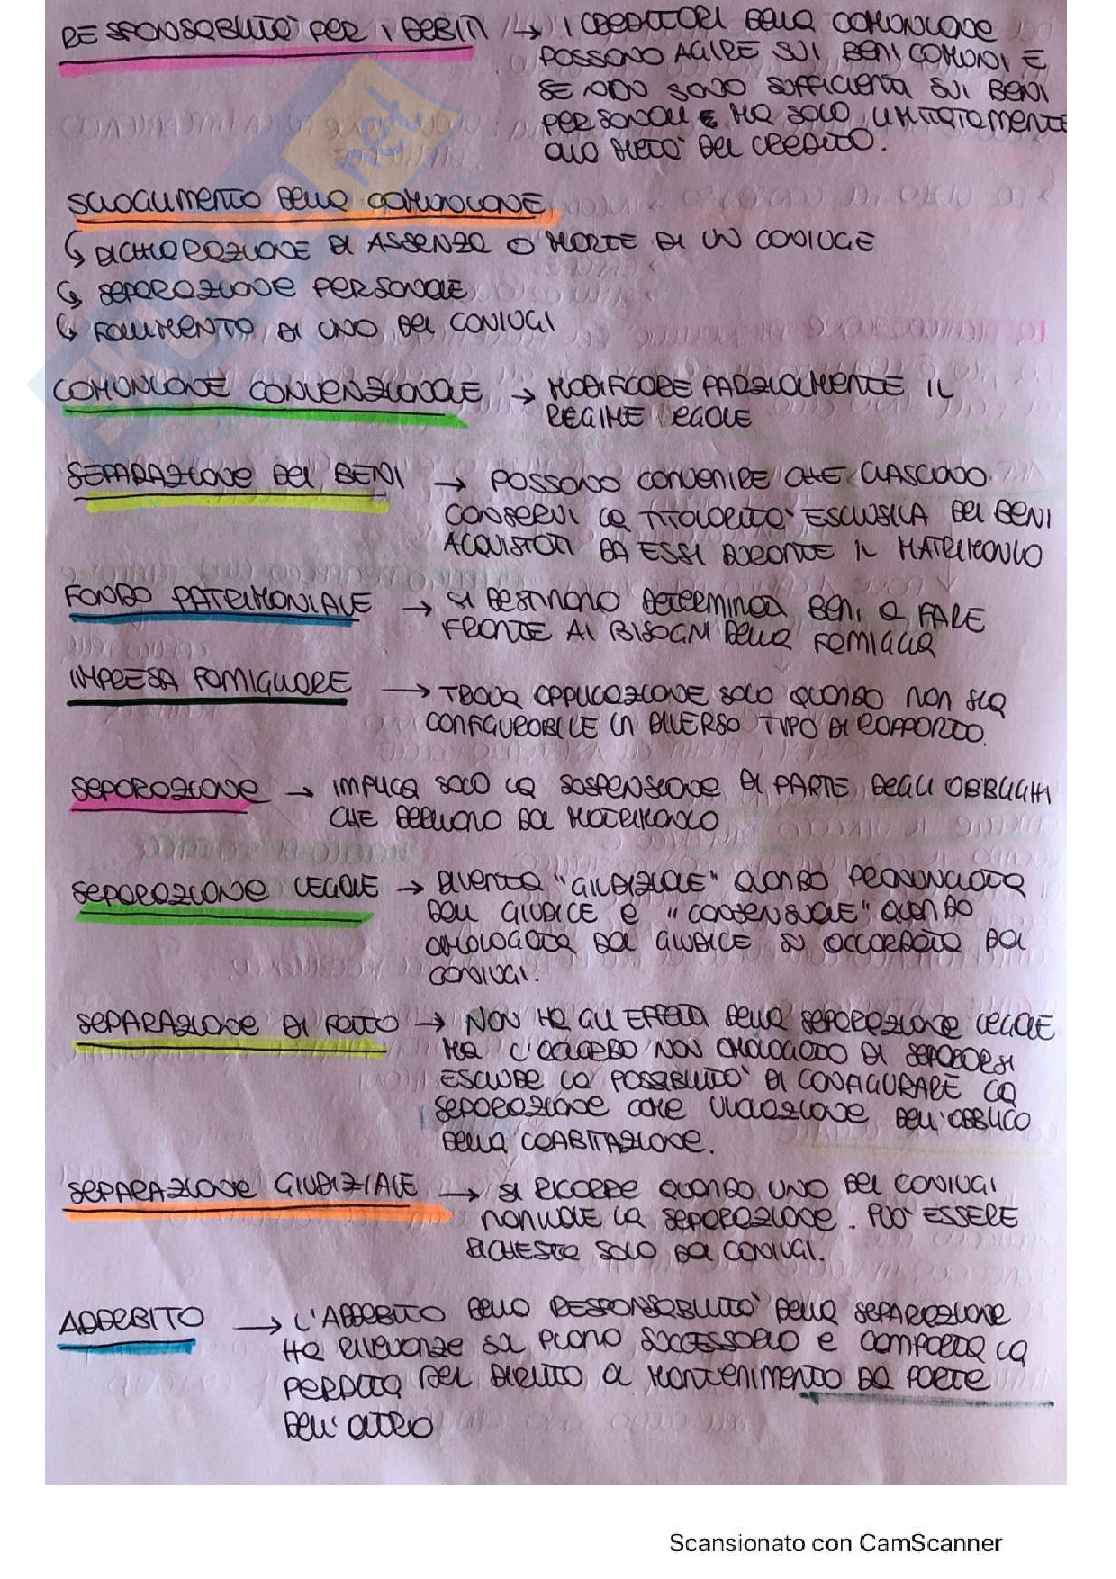 RESPONSABILITÀ PER I DEBITI → I CREDITORI DELLA COMUNIONE
POSSONO AGIRE SUI BENI COMUNI E
SE NON SONO SUFFICIENTI SUI BENI
PERSONALI E MA SOLO LIMITATAMENTE
ALLA METÀ DEL CREDITO.
SCIOGLIMENTO DELLA COMUNIONE
↳ DICHIARAZIONE DI ASSENZA O MORTE DI UN CONIUGE
↳ SEPARAZIONE PERSONALE
↳ FALLIMENTO DI UNO DEI CONIUGI
COMUNIONE CONVENZIONALE → MODIFICARE PARZIALMENTE IL
REGIME LEGALE
SEPARAZIONE DEI BENI → POSSONO CONVENIRE CHE CIASCUNO
CONSERVI LA TITOLARITÀ ESCLUSIVA DEI BENI
ACQUISTATI DA ESSI DURANTE IL MATRIMONIO
FONDO PATRIMONIALE → SI DESTINANO DETERMINATI BENI A FARE
FRONTE AI BISOGNI DELLA FAMIGLIA
IMPRESA FAMIGLIARE → TROVA APPLICAZIONE SOLO QUANDO NON SIA
CONFIGURABILE UN DIVERSO TIPO DI RAPPORTO.
SEPARAZIONE → IMPLICA SOLO LA SOSPENSIONE DI PARTE DEGLI OBBLIGHI
CHE DERIVANO DAL MATRIMONIO
SEPARAZIONE LEGALE → DIVENTA "GIUDIZIALE" QUANDO PRONUNCIATA
DAL GIUDICE E "CONSENSUALE" QUANDO
OMOLOGATA DAL GIUDICE SU ACCORDATA DAI
CONIUGI.
SEPARAZIONE DI FATTO → NON HA GLI EFFETTI DELLA SEPARAZIONE LEGALE
MA L'ACCORDO NON OMOLOGATO DI SEPARARSI
ESCLUDE LA POSSIBILITÀ DI CONFIGURARE LA
SEPARAZIONE COME VIOLAZIONE DELL'OBBLIGO
DELLA COABITAZIONE.
SEPARAZIONE GIUDIZIALE → SI RICORRE QUANDO UNO DEI CONIUGI
NON VUOLE LA SEPARAZIONE. PUÒ ESSERE
RICHIESTA SOLO DAI CONIUGI.
ADDEBITO → L'ADDEBITO DELLA RESPONSABILITÀ DELLA SEPARAZIONE
HA RILEVANZE SUL PIANO SUCCESSORIO E COMPORTA LA
PERDITA DEL DIRITTO AL MANTENIMENTO DA PARTE
DELL'ALTRO
Scansionato con CamScanner